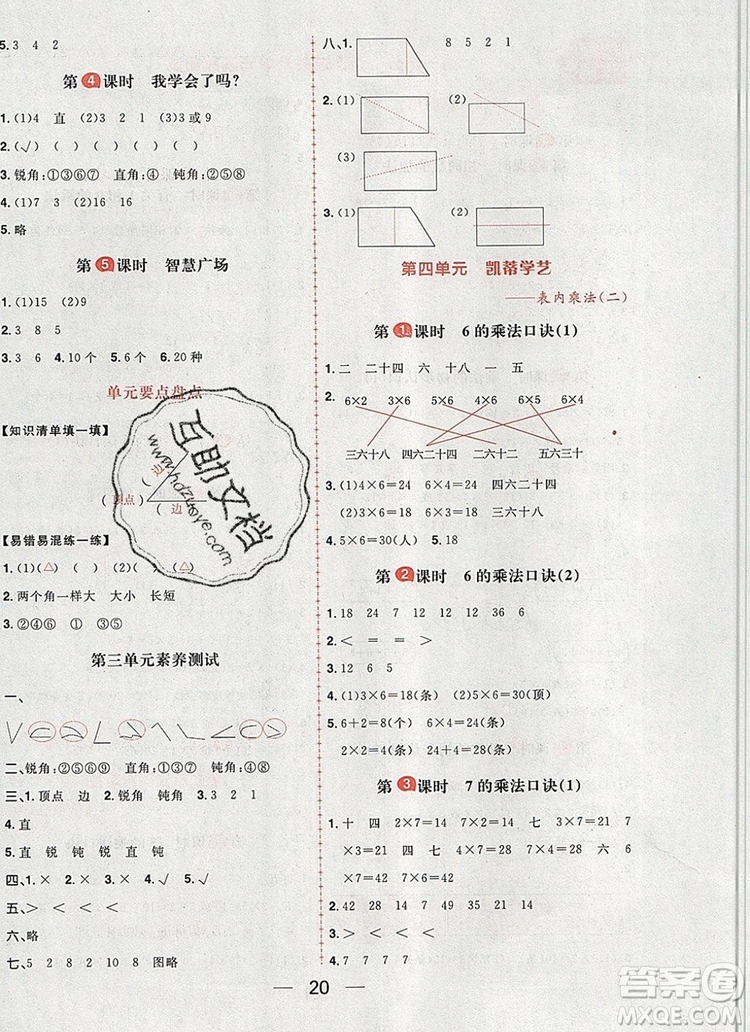 5. 3 4 2
第4课时 我学会了吗?
1. (1)4 直 (2)3 2 1 (3)3或9
2. (√) ( ) ( ) ( )
3. 锐角:①③⑥⑦ 直角:④ 钝角:②⑤⑧
4. (1)7 3 (2)16 16
5. 略
第5课时 智慧广场
1. (1)15 (2)9
2. 3 8
3. 3 6 4. 10个 5. 6个 6. 20种
单元要点盘点
【知识清单填一填】
(边)
(顶点)
(边)
【易错易混练一练】
1. (△) ( ) ( ) (△)
2. 两个角一样大 大小 长短
3. ②④⑥ ①③⑤
第三单元素养测试
一、
二、锐角:②⑤⑥⑨ 直角:①③⑦ 钝角:④⑧
三、1. 顶点 边 2. 锐角 钝角 3. 1 2
4. 直
5. 直 锐 钝 锐 直 钝
四、1. × 2. × 3. √ 4. √
五、> < < >
六、略
七、5 2 8 2 10 8 图略
八、1. 8 5 2 1
2. (1) (2)
(3)
3. (1) (2)
第四单元 凯蒂学艺
——表内乘法(二)
第1课时 6的乘法口诀(1)
1. 二 二十四 六 十八 一 五
2. 6×2 3×6 5×6 6×5 6×4
三六十八 四六二十四 二六十二 五六三十
3. (1)4×6=24 6×4=24
(2)3×6=18 6×3=18
4. 5×6=30(人) 5. 18
第2课时 6的乘法口诀(2)
1. 18 24 7 12 12 36 6
2. < = = <
3. 12 6 5
4. (1)3×6=18(条) (2)5×6=30(顶)
5. 6+2=8(个) 6×4=24(条)
2×2=4(条) 24+4=28(条)
第3课时 7的乘法口诀(1)
1. 十 四 2×7=14 7×2=14 七 3×7=21
7×3=21 四 4×7=28 7×4=28 六 6
×7=42 7×6=42
2. 42 28 14 49 14 28
3. < > < < = <
4. 7 7 7 7 7 7
20
互助文档
www.hdzuoye.com
答案圈
MXQE.COM